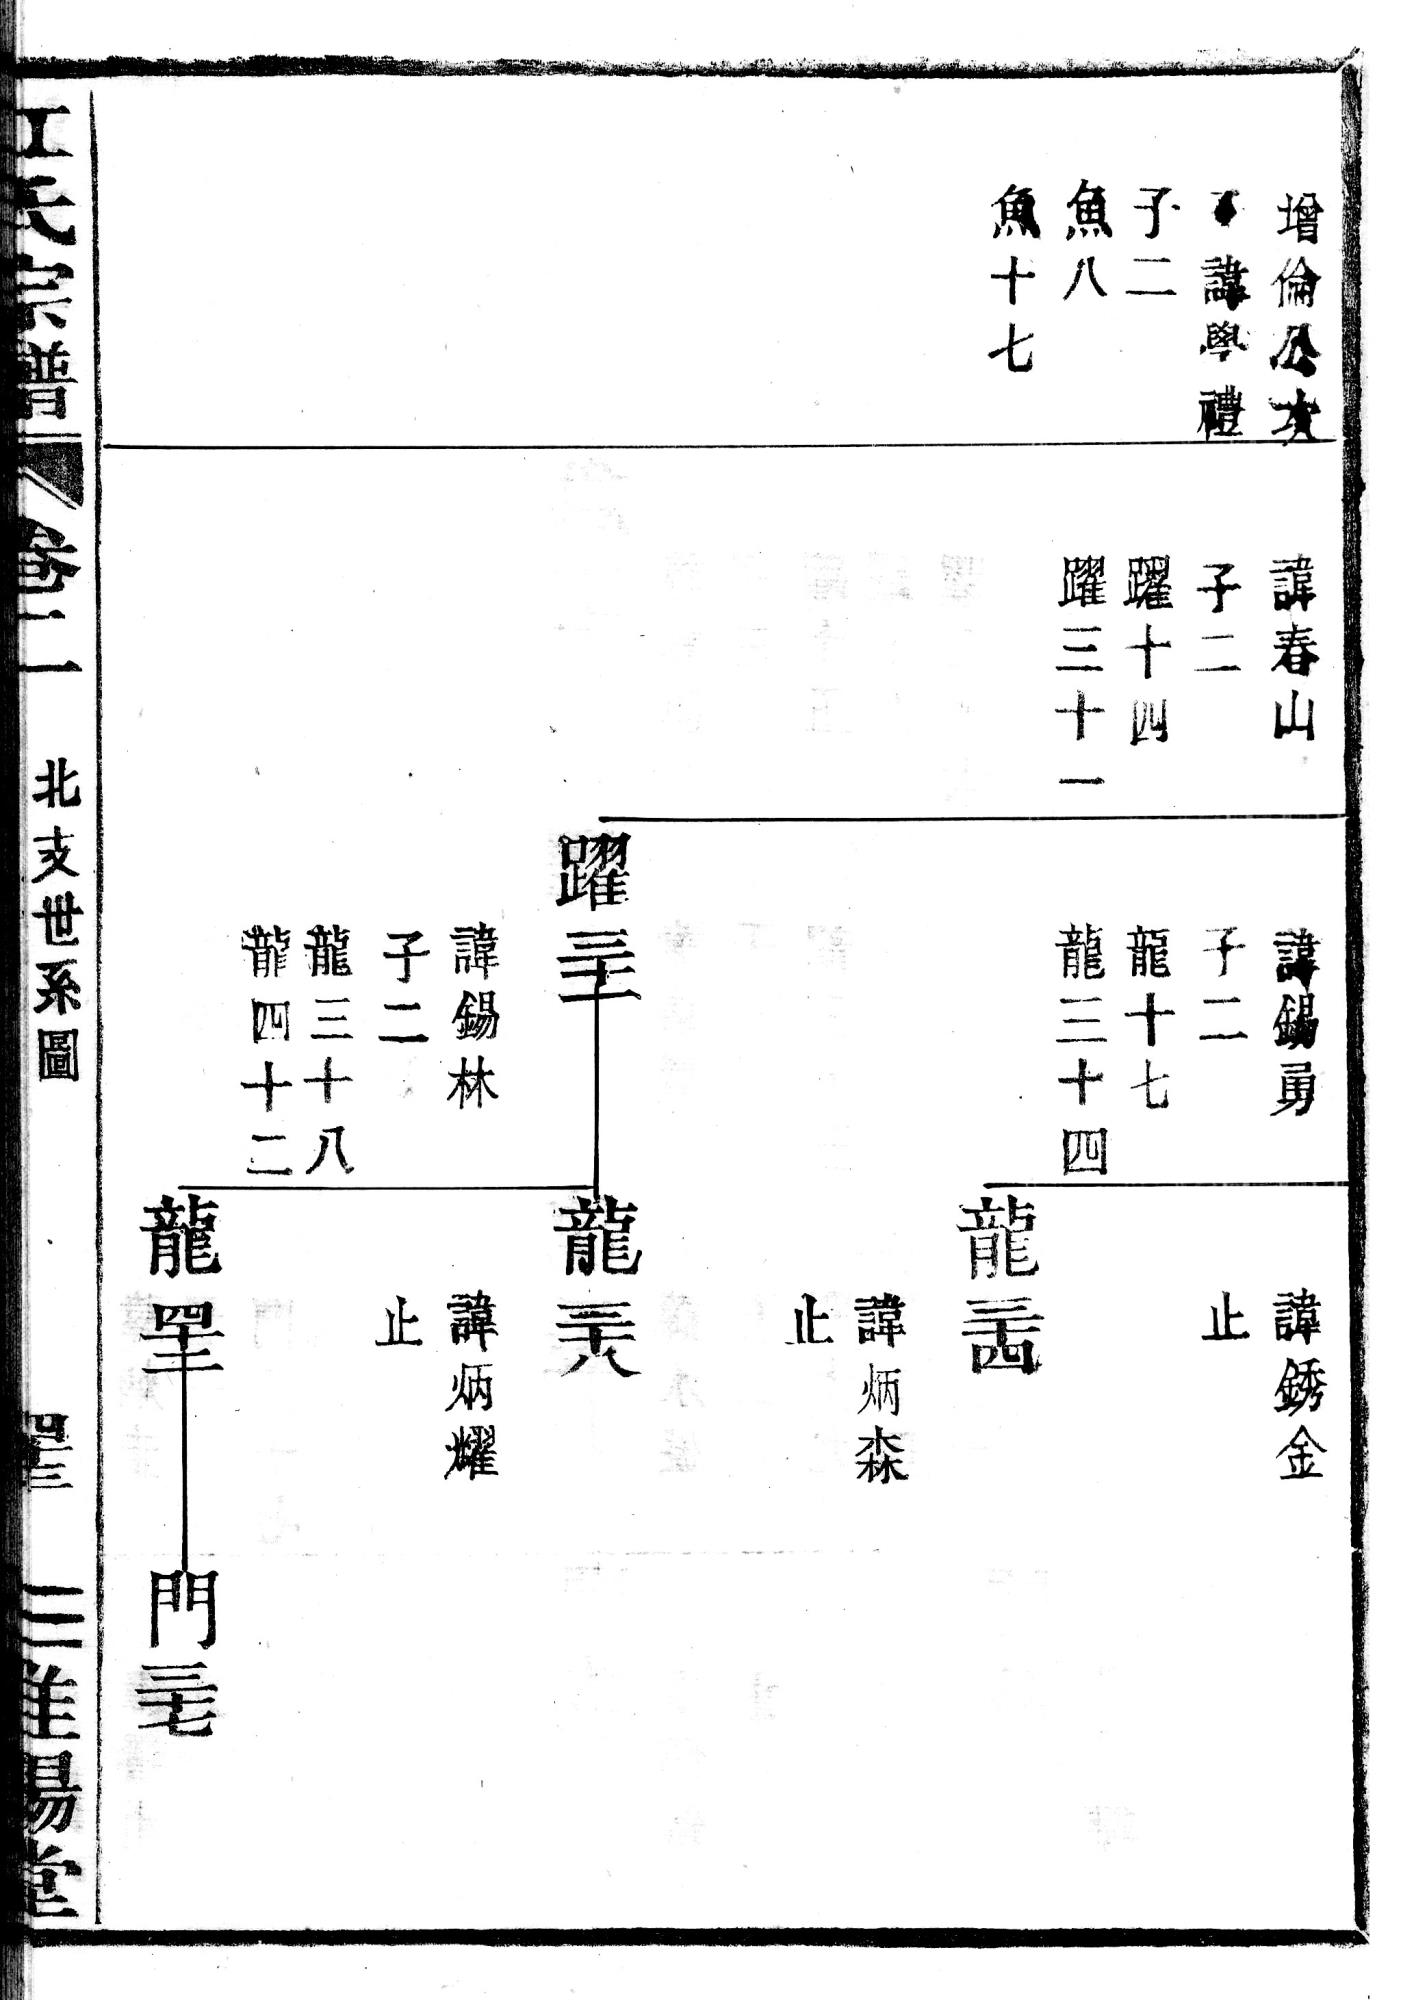 增倫公次
子諱學禮
子二
魚八
魚十七
諱春山
子二
躍十四
躍三十一
諱錫勇
子二
龍十七
龍三十四
躍三十一
諱錫林
子二
龍三十八
龍四十二
諱銹金
止
龍三十四
諱炳森
止
龍三十八
諱炳耀
止
龍四十二
門三十七
江氏宗譜
卷二
北支世系圖
四十三
三淮陽堂